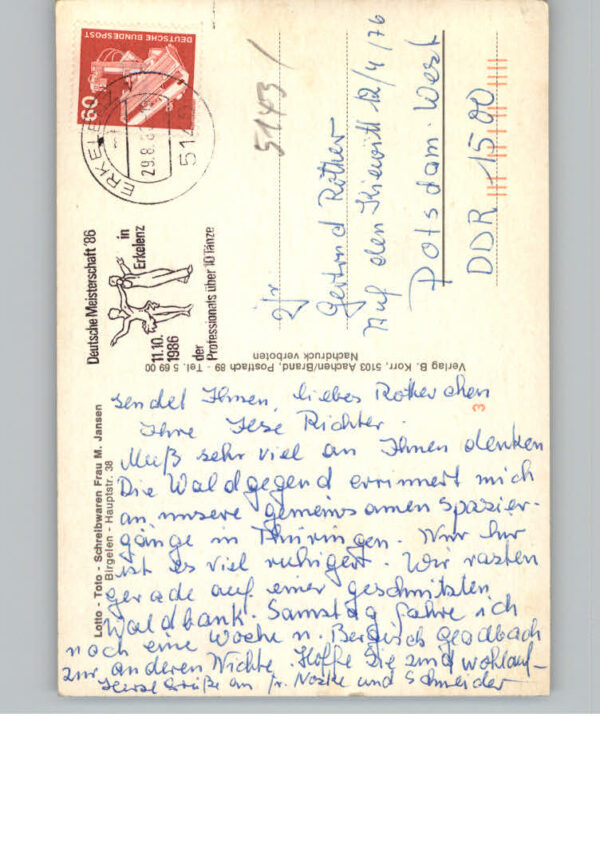 DEUTSCHE BUNDESPOST
60
ERKELENZ
29.8.8
514
Deutsche Meisterschaft '86
in
Erkelenz
11.10.
1986
der
Professionals über 10 Tänze
5143
Fr.
Gertrud Rother
Auf den Kiewitt 12/4/76
Potsdam-West
DDR 1500
Verlag B. Korr, 5103 Aachen/Brand, Postfach 89 - Tel. 5 69 00
Nachdruck verboten
3
Lotto - Toto - Schreibwaren Frau M. Jansen
Birgelen - Hauptstr. 38
sendet Ihnen, liebes Rotherchen
Ihre Richter.
Muß sehr viel an Ihnen denken
Die Waldgegend errinnert mich
an unsere gemeinsamen Spazier-
gänge in Thüringen. Nur hier
ist es viel ruhiger. Wir rasten
gerade auf einer geschnitzten
Waldbank. Samstag fahre ich
noch eine Woche n. Bergisch Gladbach
zur anderen Nichte. Hoffe Sie sind wohlauf-
Herzl. Grüße an Fr. Noske und Schneider